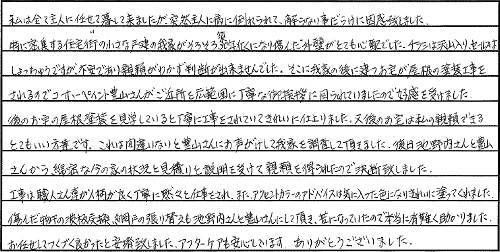 私は全て主人に任せて暮して来ましたが突然主人に病に倒れられて、解らない事だらけに困惑致しました。
時に密集する住宅街の小さな戸建の我家がそろそろ老朽化になり傷んだ外壁がとても心配でした。チラシは沢山入り、セールスは
しょっちゅうですが、不安であり親類がわかず判断が出来ませんでした。そこに我家の後に建つお宅が屋根の塗装工事を
されるのでユーコーペイント豊山さんがご近所を広範囲に丁寧な御挨拶に回られていましたので好感を受けました。
後のお宅の屋根塗装を見学していると丁寧に工事をされていてきれいに仕上りました。又後のお宅は私の親類できる
とてもいい方達です。これは間違いないと豊山さんにお声がけして我家を調査して頂きました。後日池野内さんと豊山
さんから、綿密な今の家の状況と見積りと説明を受けて親頼を得られたので決断致しました。
工事は職人さん達が人柄が良く丁寧に黙々と仕事をされ、また、アクセントカラーのアドバイスは気に入った色になりきれいに塗ってくれました。
傷んだ物干の波板交換、網戸の張り替えも池野内さんと豊山さんにして頂き、苦になっていたので本当に有難く助かりました。
お任せしてつくづく良かったと安堵致しました。アフターケアも安心しています。ありがとうございました。